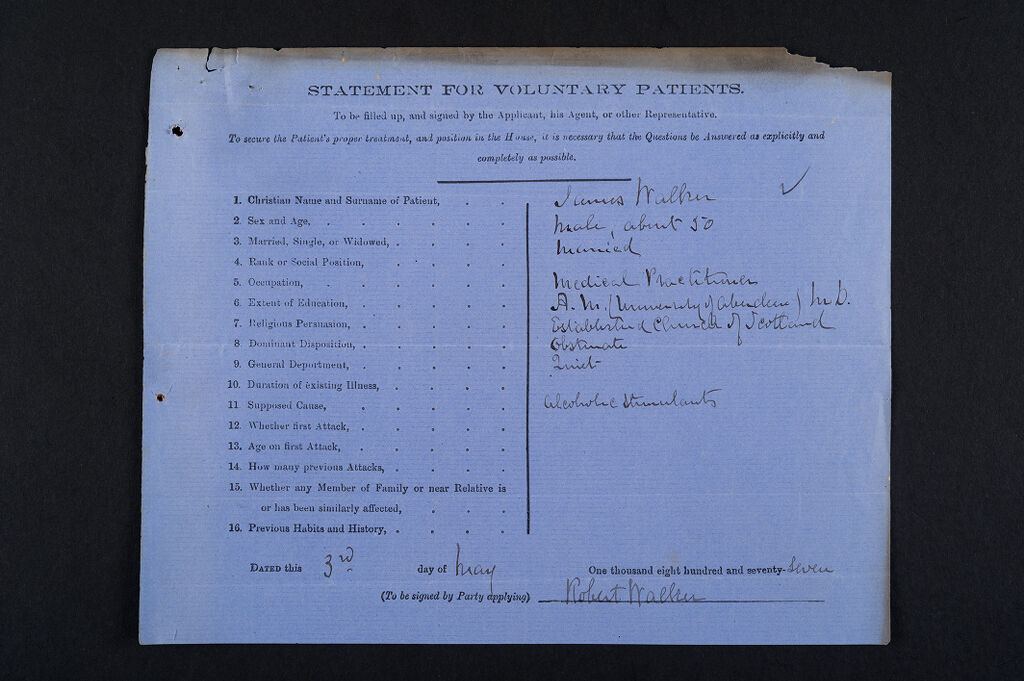 STATEMENT FOR VOLUNTARY PATIENTS.
To be filled up, and signed by the Applicant, his Agent, or other Representative.
To secure the Patient's proper treatment, and position in the House, it is necessary that the Questions be Answered as explicitly and
completely as possible.
1. Christian Name and Surname of Patient, . . James Walker ✓
2. Sex and Age, . . . . . . Male, about 50
3. Married, Single, or Widowed, . . . . Married
4. Rank or Social Position, . . . .
5. Occupation, . . . . . Medical Practitioner
6. Extent of Education, . . . . . A.M. (University of Aberdeen) M.D.
7. Religious Persuasion, . . . . . Established Church of Scotland
8. Dominant Disposition, . . . . . Obstinate
9. General Deportment, . . . . . Quiet
10. Duration of existing Illness, . . . .
11. Supposed Cause, . . . . . Alcoholic Stimulants
12. Whether first Attack, . . . . .
13. Age on first Attack, . . . . .
14. How many previous Attacks, . . . .
15. Whether any Member of Family or near Relative is
or has been similarly affected, . . .
16. Previous Habits and History, . . . .
DATED this 3rd day of May One thousand eight hundred and seventy-seven
(To be signed by Party applying) Robert Walker